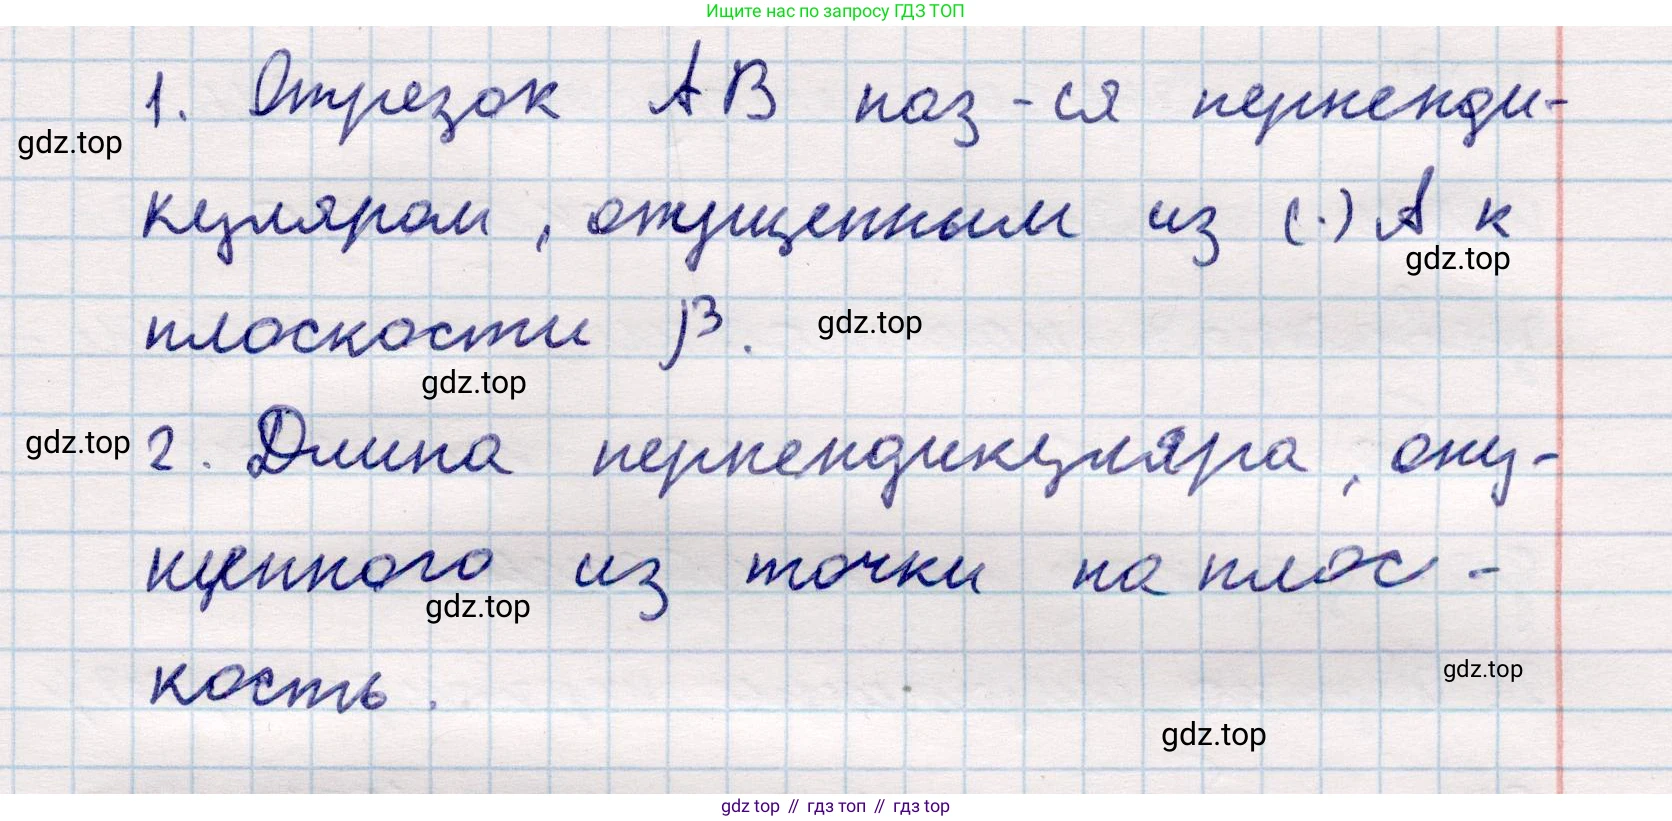 Ищите нас по запросу ГДЗ ТОП
1. Отрезок АВ наз-ся перпенди-
gdz.top
куляром, отущенным из (·) А к
gdz.top
плоскости β.
gdz.top
gdz.top
gdz.top
2. Длина перпендикуляра, опу-
щенного из точки на плос-
gdz.top
кость.
gdz.top
gdz.top
gdz top // гдз топ // гдз top